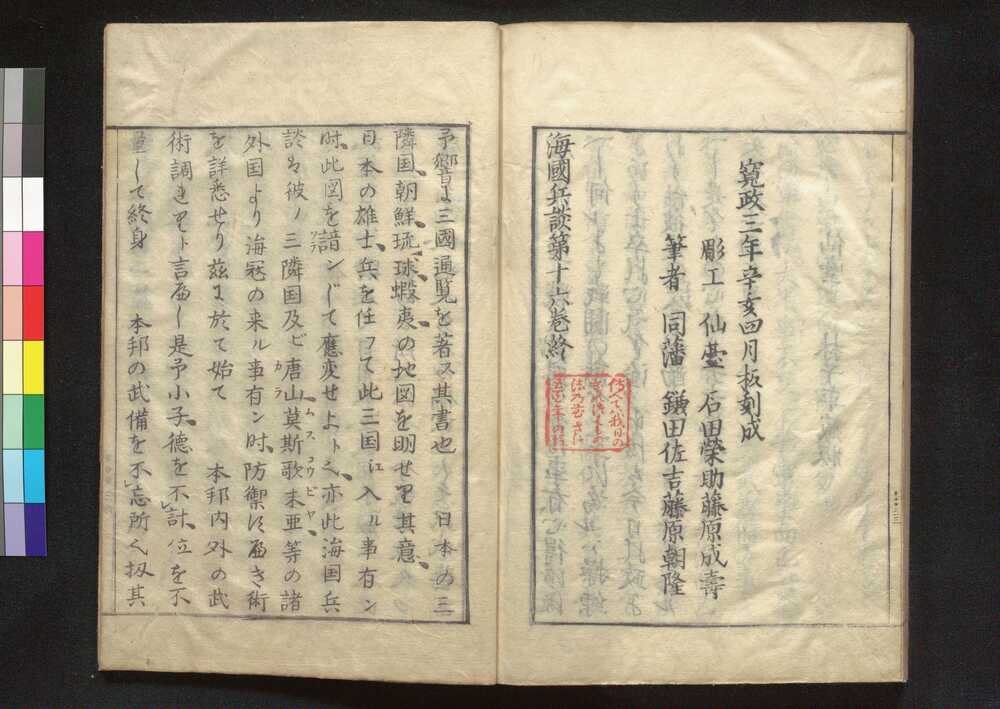 寛政三年辛亥四月板刻成
彫工仙臺石田榮助藤原成壽
筆者同藩鎌田佐吉藤原朝隆
海國兵談第十六巻終
予嚮ニ三國通覧を著ス其書也日本の三
隣国、朝鮮、琉球、蝦夷の地図を明せり其意、
日本の雄士、兵を任フて此三国江入ル事有ン
時、此図を諳ンじて應変せよト也、亦此海国兵
談ハ彼ノ三隣国及ビ唐山莫斯歌未亜等の諸
外国より海冦の来ル事有ン時、防禦すべき術
を詳悉せり茲に於て始て 本邦内外の武
術調れりト言べし是予小子、徳を不計、位を不
量して終身 本邦の武備を不忘所也扨其